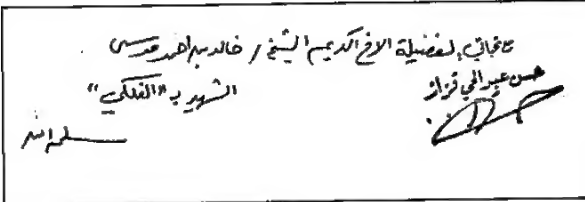 مع تحياتي لفضيلة الأخ الكريم الشيخ / خالد بن أحمد قدسي
الشهير بـ "الفلكي"
حسن عبد الحي قزاز
سلمه الله